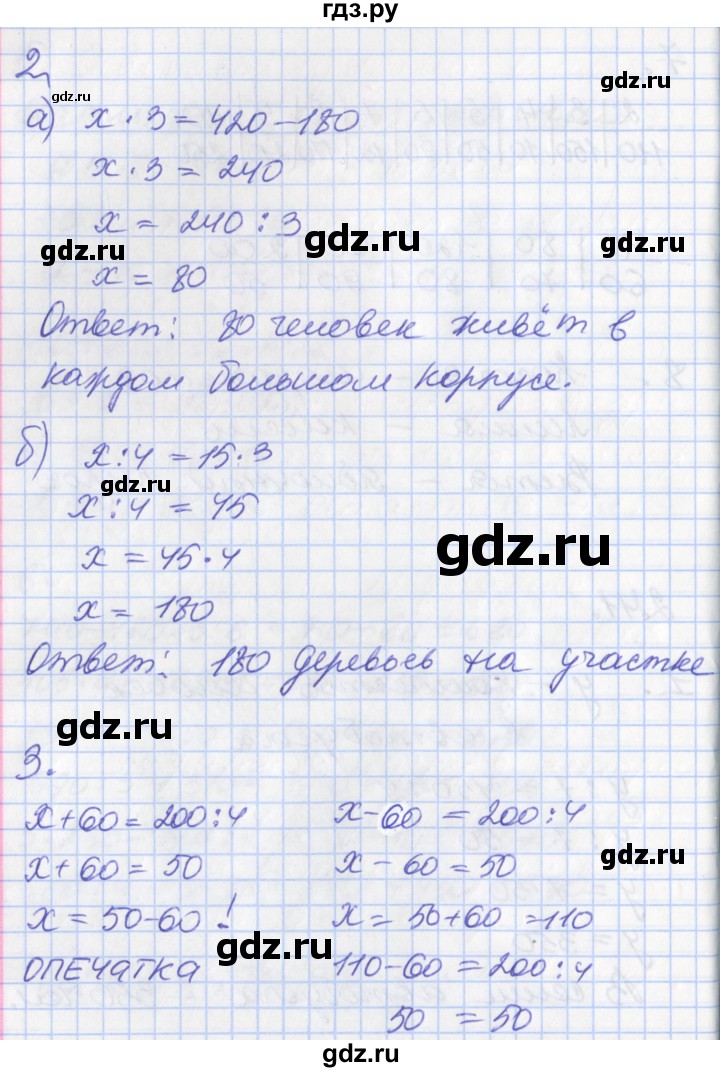 гдз.ру
2.
gdz.ru
gdz.ru
а) x · 3 = 420 – 180
x · 3 = 240
x = 240 : 3
gdz.ru
gdz.ru
gdz.ru
x = 80
Ответ: 80 человек живёт в
каждом большом корпусе.
б) x : 4 = 15 · 3
gdz.ru
x : 4 = 45
gdz.ru
x = 45 · 4
x = 180
Ответ: 180 деревьев на участке
gdz.ru
3.
x + 60 = 200 : 4
x – 60 = 200 : 4
x + 60 = 50
x – 60 = 50
gdz.ru
x = 50 – 60 !
x = 50 + 60 = 110
gdz.ru
ОПЕЧАТКА
110 – 60 = 200 : 4
50 = 50
gdz.ru